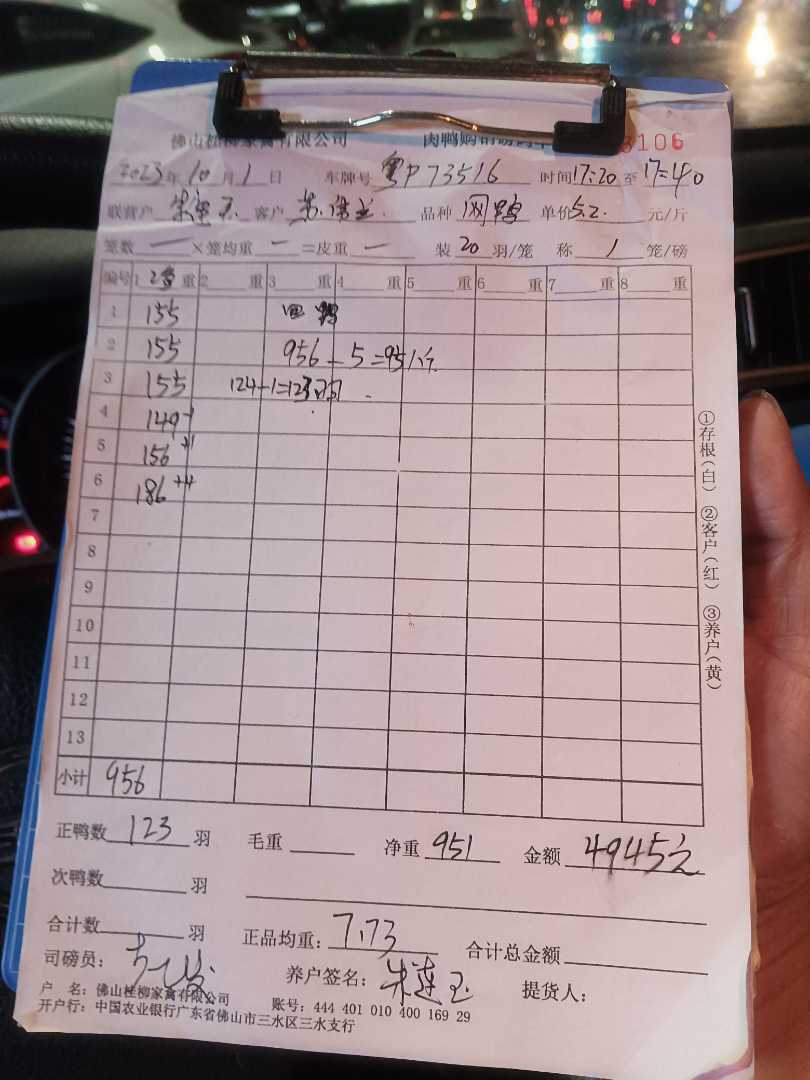 佛山桂柳家禽有限公司 肉鸭购销 3106
2023年10月1日 车牌号 粤P73516 时间17:20至17:40
联营户 朱莲玉 客户 品种 网鸭 单价5.2 元/斤
笼数 一 ×笼均重 一 =皮重 一 装 20 羽/笼 称 1 笼/磅
编号 1 重 2 重 3 重 4 重 5 重 6 重 7 重 8 重
1 155 鸭
2 155 956-5=951斤
3 155 124-1=123羽
4 149 -1
5 156 +1
6 186 +4
7
8
9
10
11
12
13
小计 956
正鸭数 123 羽 毛重 净重 951 金额 4945元
次鸭数 羽
合计数 羽 正品均重: 7.73 合计总金额
司磅员: 养户签名: 朱莲玉 提货人:
户 名: 佛山桂柳家禽有限公司 账号: 444 401 010 400 169 29
开户行: 中国农业银行广东省佛山市三水区三水支行
①存根(白) ②客户(红) ③养户(黄)